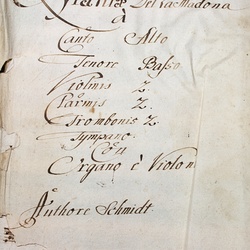 Litaniae Della Madona
à
Canto Alto
Tenore Basso
Violinis 2.
Clarinis 2.
Trombonis 2.
Tympano
Con
Organo è Violon
Authore Schmidt.